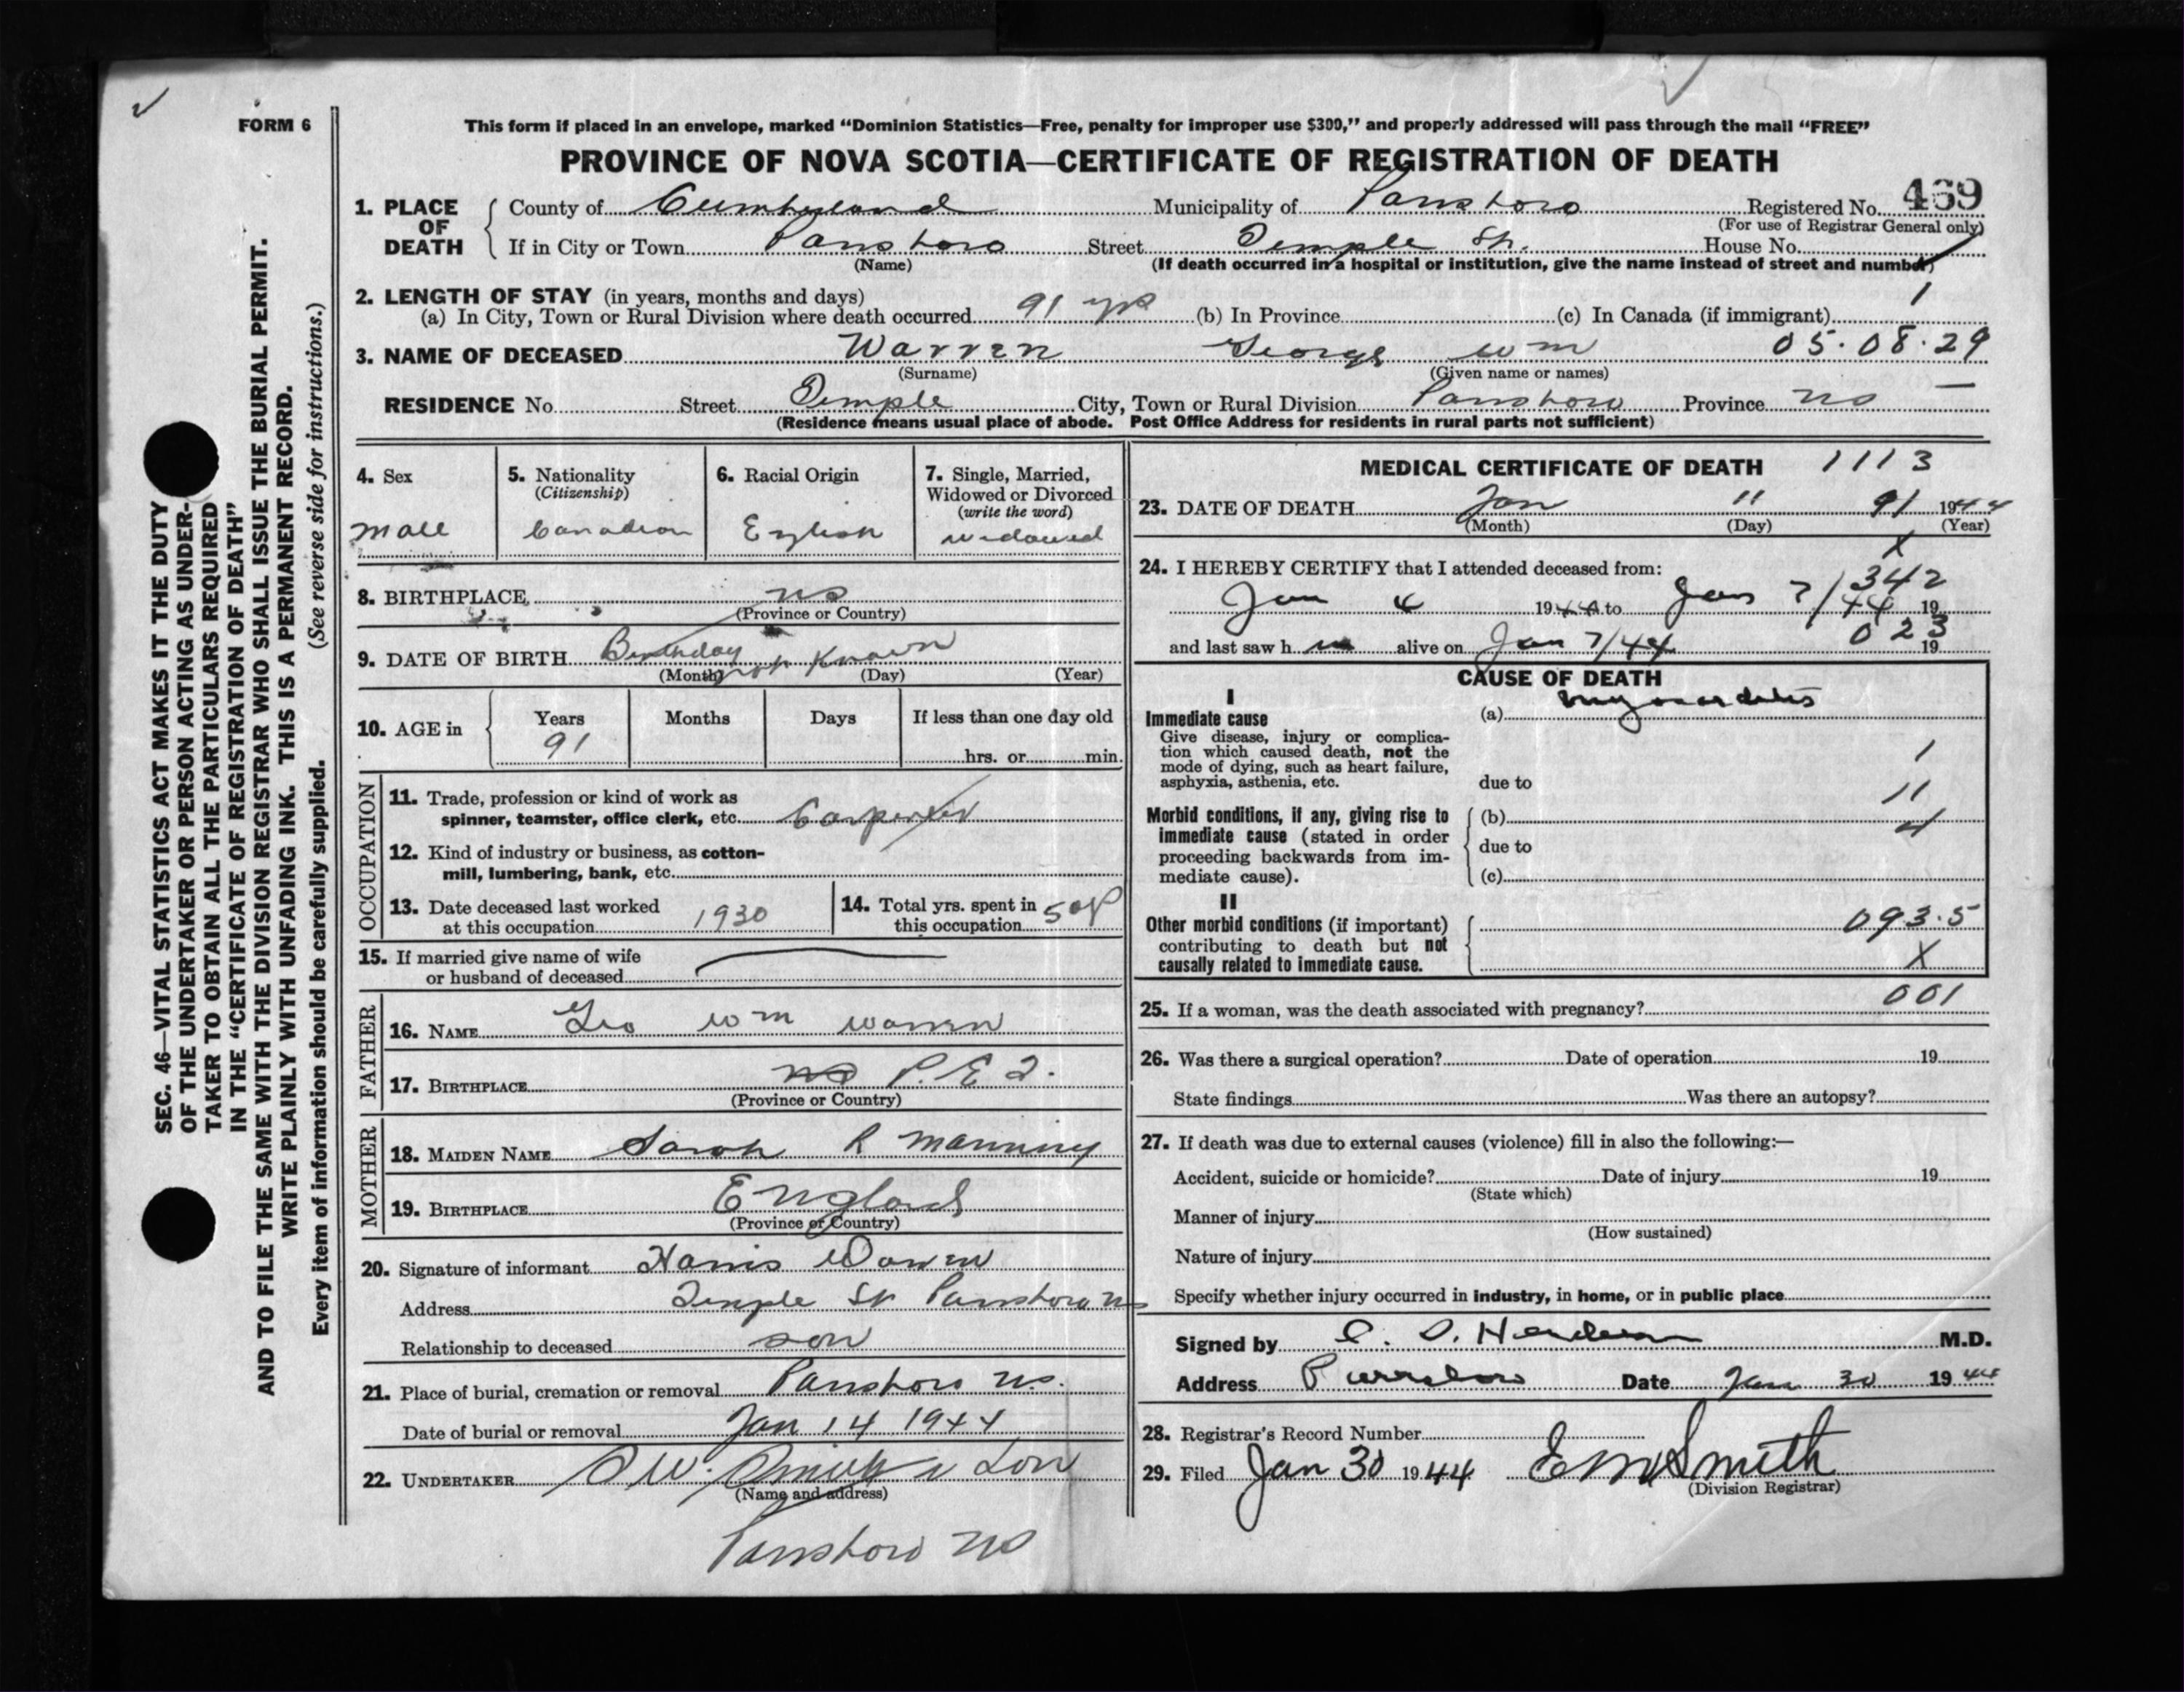 FORM 6
This form if placed in an envelope, marked "Dominion Statistics—Free, penalty for improper use $300," and properly addressed will pass through the mail "FREE"
PROVINCE OF NOVA SCOTIA—CERTIFICATE OF REGISTRATION OF DEATH
1. PLACE OF DEATH
County of Cumberland Municipality of Parrsboro Registered No. 469
(For use of Registrar General only)
If in City or Town Parrsboro Street Temple St. House No.
(Name) (If death occurred in a hospital or institution, give the name instead of street and number)
2. LENGTH OF STAY (in years, months and days) 1
(a) In City, Town or Rural Division where death occurred 91 yrs (b) In Province (c) In Canada (if immigrant)
3. NAME OF DECEASED Warren George Wm 05·08·29
(Surname) (Given name or names)
RESIDENCE No. Street Temple City, Town or Rural Division Parrsboro Province NS
(Residence means usual place of abode. Post Office Address for residents in rural parts not sufficient)
4. Sex
male
5. Nationality
(Citizenship)
Canadian
6. Racial Origin
English
7. Single, Married,
Widowed or Divorced
(write the word)
widowed
8. BIRTHPLACE NS
(Province or Country)
9. DATE OF BIRTH Birthday not Known
(Month) (Day) (Year)
10. AGE in
Years Months Days If less than one day old
91 hrs. or min.
OCCUPATION
11. Trade, profession or kind of work as
spinner, teamster, office clerk, etc. Carpenter
12. Kind of industry or business, as cotton-
mill, lumbering, bank, etc.
13. Date deceased last worked
at this occupation 1930
14. Total yrs. spent in
this occupation 50
15. If married give name of wife
or husband of deceased
FATHER
16. NAME Geo Wm Warren
17. BIRTHPLACE NS P.E.I.
(Province or Country)
MOTHER
18. MAIDEN NAME Sarah R Manning
19. BIRTHPLACE England
(Province or Country)
20. Signature of informant Harris Warren
Address Temple St Parrsboro NS
Relationship to deceased son
21. Place of burial, cremation or removal Parrsboro NS.
Date of burial or removal Jan 14 1944
22. UNDERTAKER Smith & Son
(Name and address)
Parrsboro NS
MEDICAL CERTIFICATE OF DEATH 1113
23. DATE OF DEATH Jan 11 91 1944
(Month) (Day) (Year)
X
24. I HEREBY CERTIFY that I attended deceased from:
342
Jan 4 1944 to Jan 7/44 19
023
and last saw h im alive on Jan 7/44 19
CAUSE OF DEATH
I
Immediate cause
Give disease, injury or complica-
tion which caused death, not the
mode of dying, such as heart failure,
asphyxia, asthenia, etc.
(a) Myocarditis
1
due to
11
Morbid conditions, if any, giving rise to
immediate cause (stated in order
proceeding backwards from im-
mediate cause).
(b)
due to
(c)
II
Other morbid conditions (if important)
contributing to death but not
causally related to immediate cause.
093·5
X
001
25. If a woman, was the death associated with pregnancy?
26. Was there a surgical operation? Date of operation 19
State findings Was there an autopsy?
27. If death was due to external causes (violence) fill in also the following:—
Accident, suicide or homicide? Date of injury 19
(State which)
Manner of injury
(How sustained)
Nature of injury
Specify whether injury occurred in industry, in home, or in public place
Signed by Henderson M.D.
Address Parrsboro Date Jan 30 1944
28. Registrar's Record Number
29. Filed Jan 30 1944 EM Smith
(Division Registrar)
SEC. 46—VITAL STATISTICS ACT MAKES IT THE DUTY
OF THE UNDERTAKER OR PERSON ACTING AS UNDER-
TAKER TO OBTAIN ALL THE PARTICULARS REQUIRED
IN THE "CERTIFICATE OF REGISTRATION OF DEATH"
AND TO FILE THE SAME WITH THE DIVISION REGISTRAR WHO SHALL ISSUE THE BURIAL PERMIT.
WRITE PLAINLY WITH UNFADING INK. THIS IS A PERMANENT RECORD.
Every item of information should be carefully supplied. (See reverse side for instructions.)